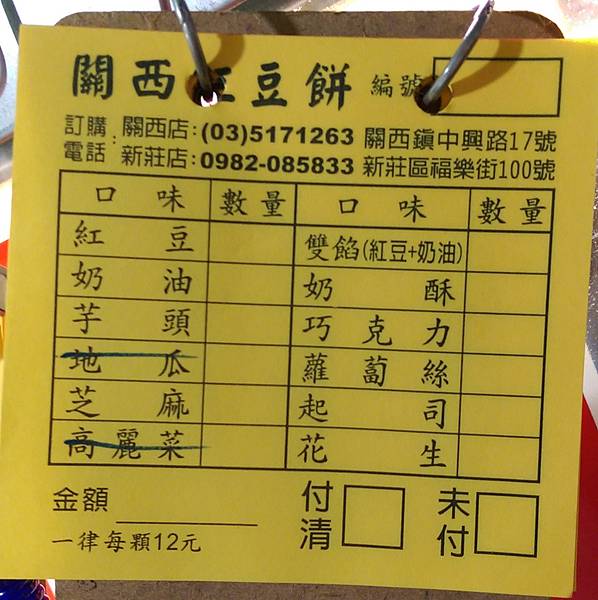 關西紅豆餅 編號
訂購電話:
關西店:(03)5171263 關西鎮中興路17號
新莊店:0982-085833 新莊區福樂街100號
口味 數量 口味 數量
紅豆 雙餡(紅豆+奶油)
奶油 奶酥
芋頭 巧克力
地瓜 蘿蔔絲
芝麻 起司
高麗菜 花生
金額 付清 未付
一律每顆12元